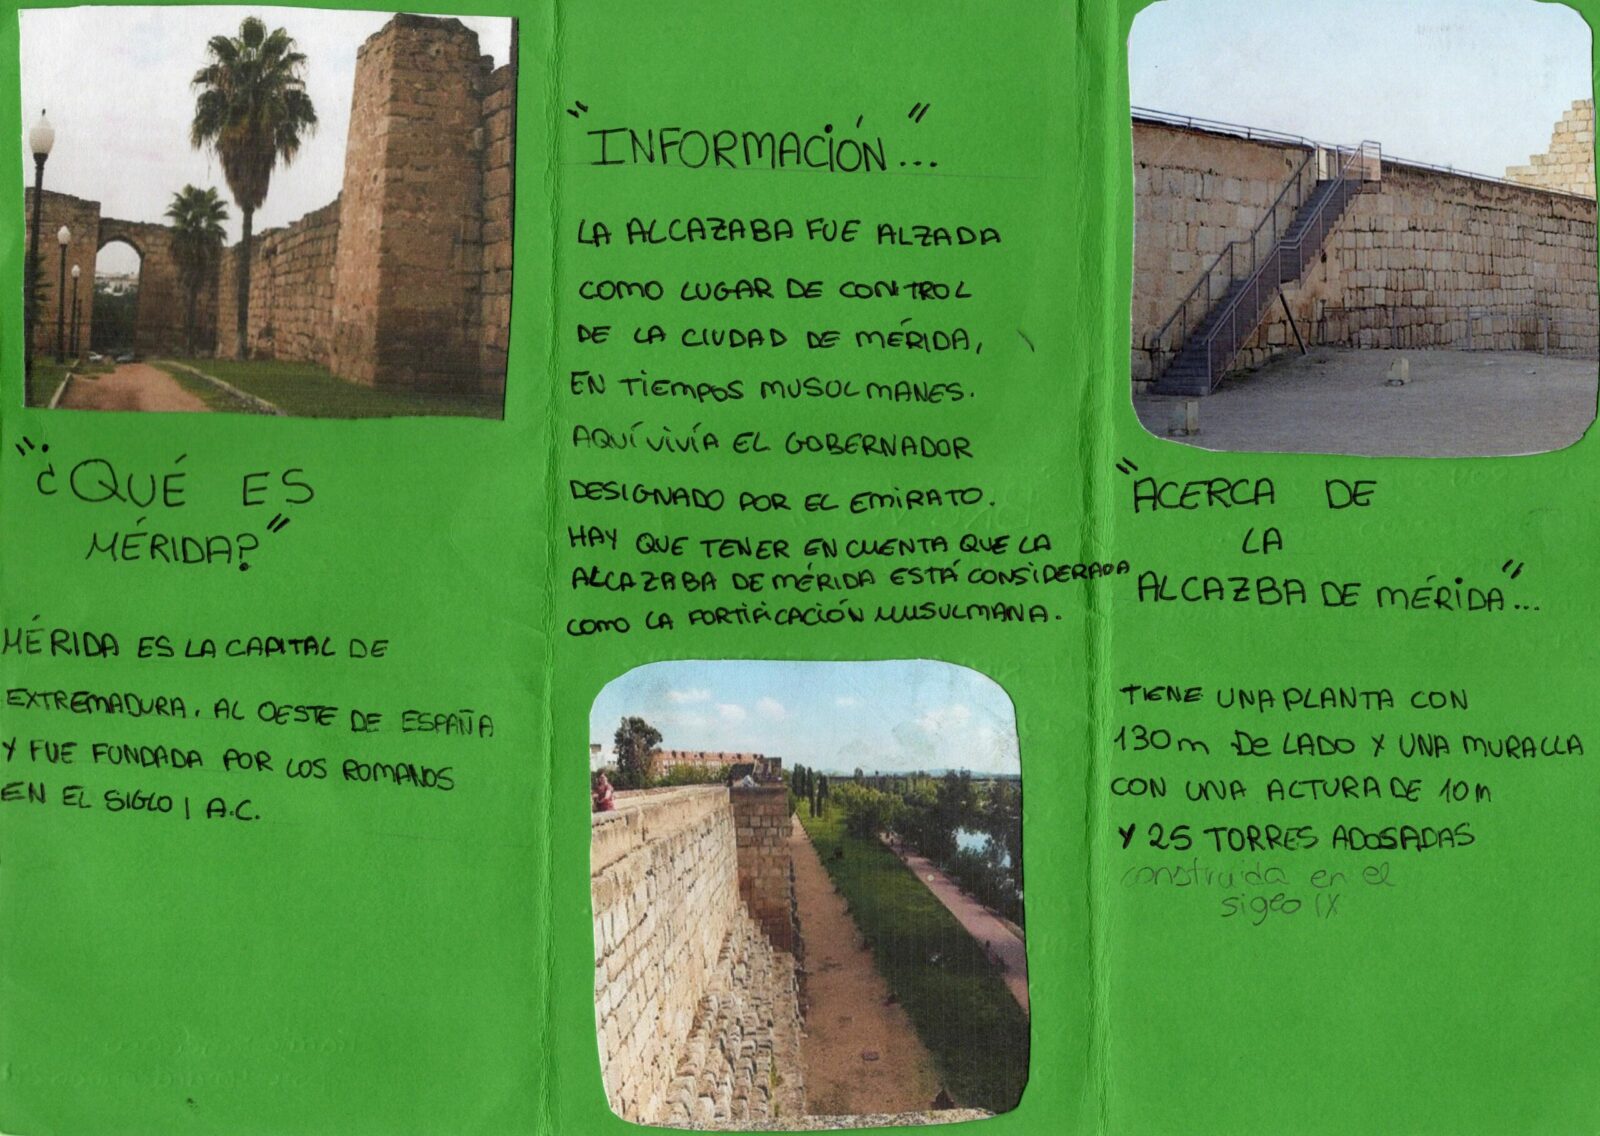 "¿QUÉ ES
MÉRIDA?"
MÉRIDA ES LA CAPITAL DE
EXTREMADURA. AL OESTE DE ESPAÑA
Y FUE FUNDADA POR LOS ROMANOS
EN EL SIGLO I A.C.
"INFORMACIÓN"...
LA ALCAZABA FUE ALZADA
COMO LUGAR DE CONTROL
DE LA CIUDAD DE MÉRIDA,
EN TIEMPOS MUSULMANES.
AQUÍ VIVÍA EL GOBERNADOR
DESIGNADO POR EL EMIRATO.
HAY QUE TENER EN CUENTA QUE LA
ALCAZABA DE MÉRIDA ESTÁ CONSIDERADA
COMO LA FORTIFICACIÓN MUSULMANA.
"ACERCA DE
LA
ALCAZBA DE MÉRIDA"...
TIENE UNA PLANTA CON
130m DE LADO Y UNA MURALLA
CON UNA ALTURA DE 10m
Y 25 TORRES ADOSADAS
construida en el
siglo IX